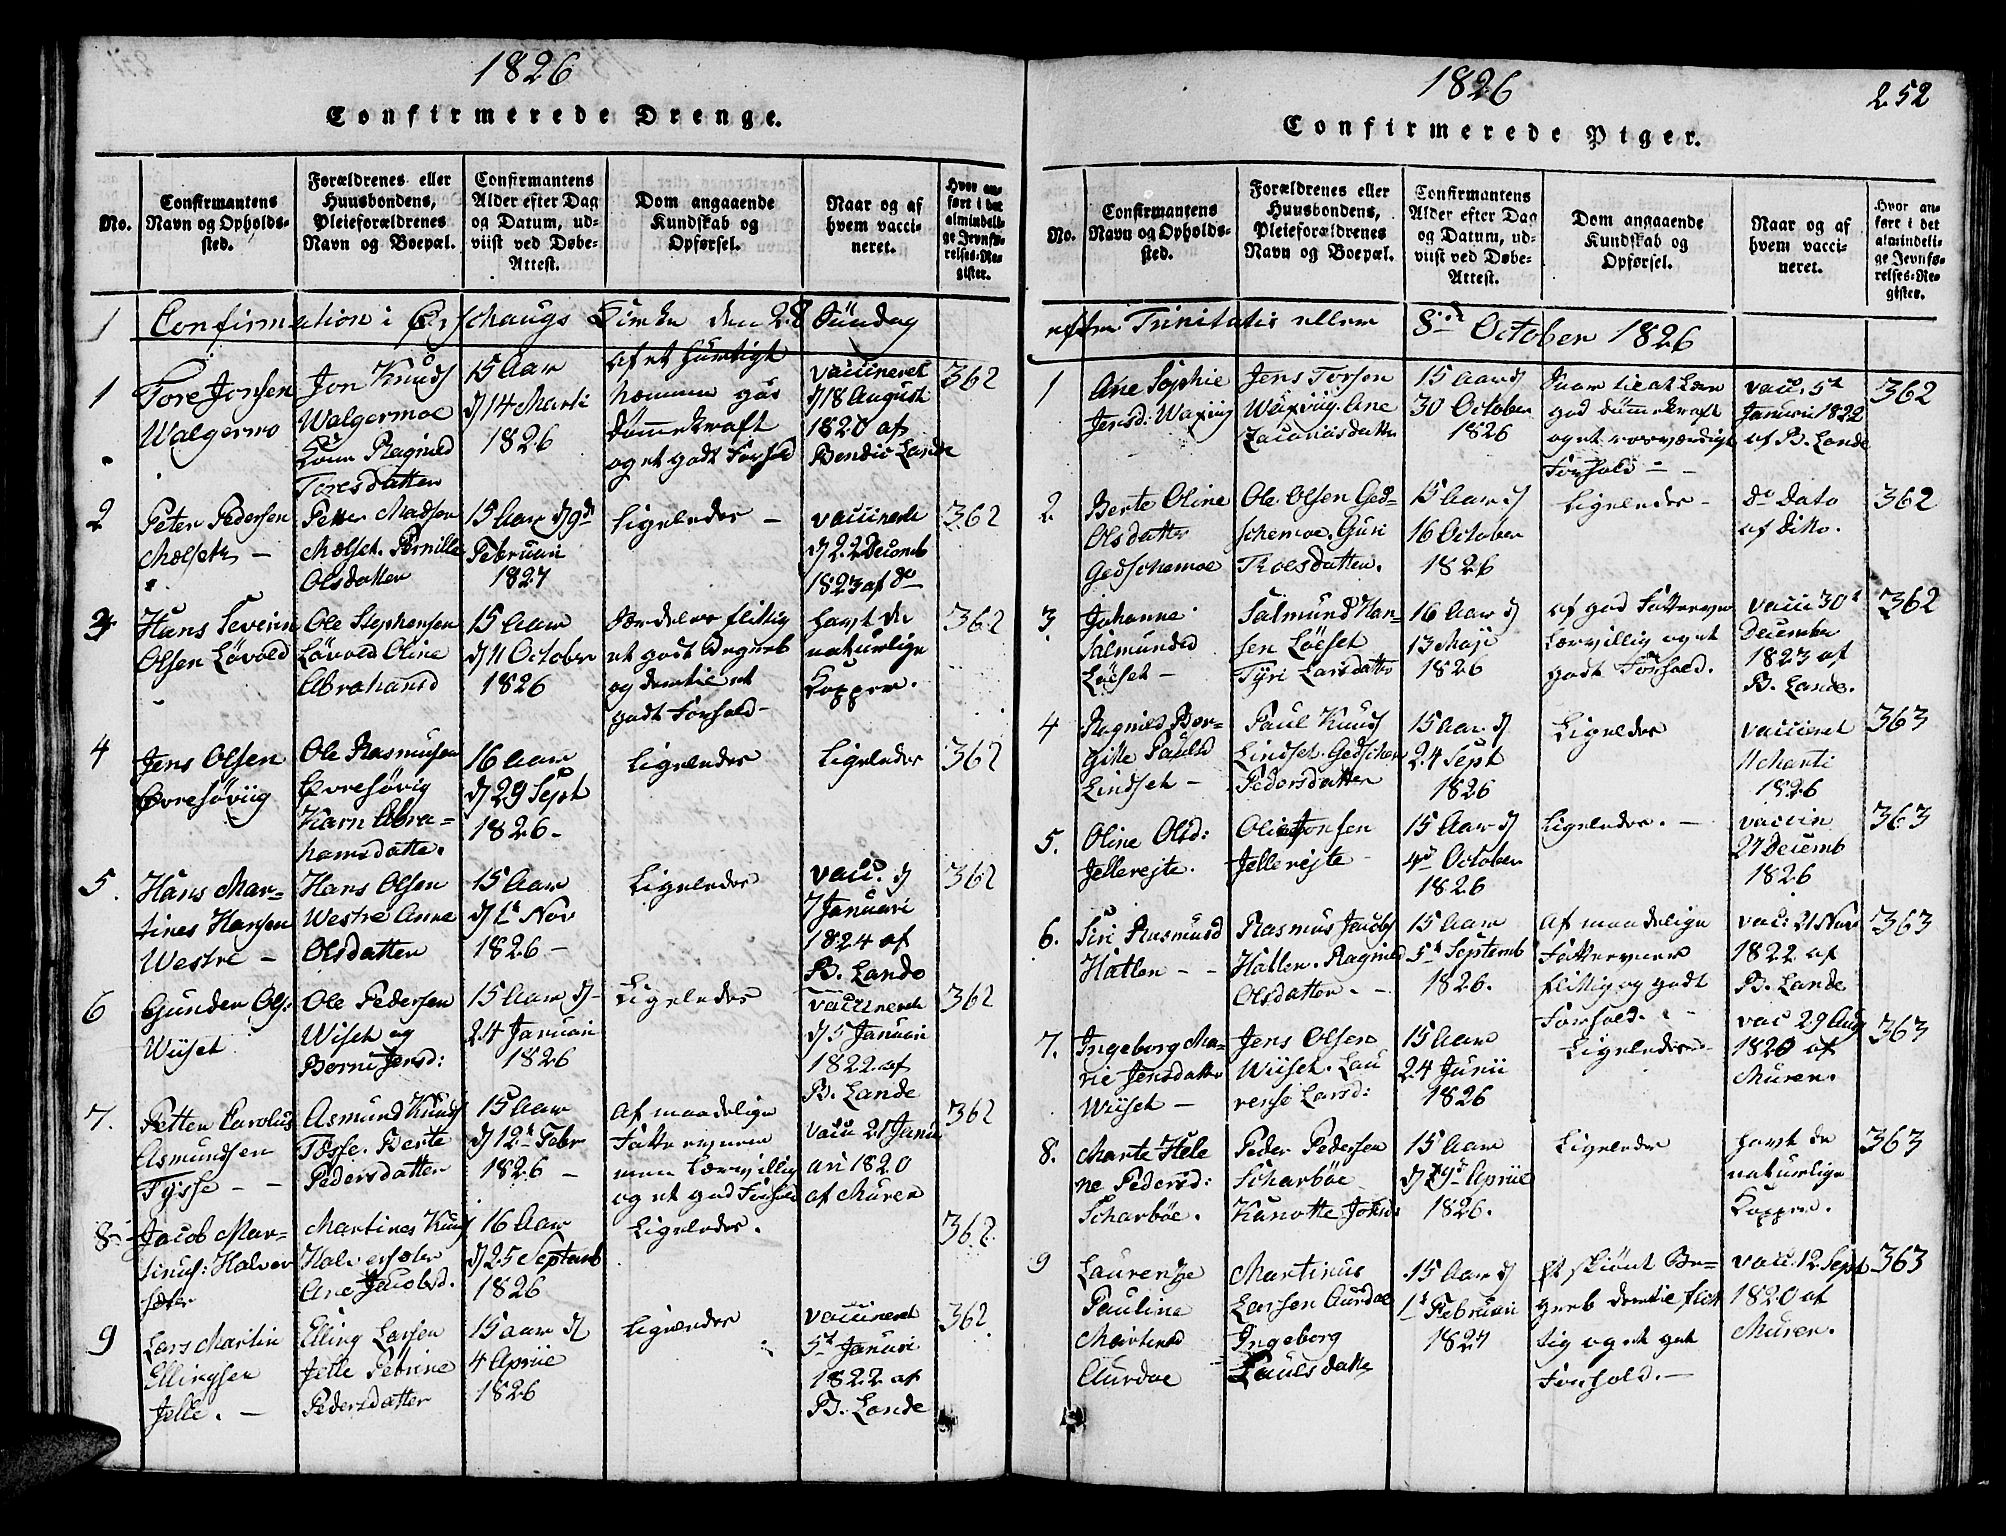 1826
Confirmerede Drenge.
No.
Confirmantens
Navn og Opholds-
sted.
Forældrenes eller
Huusbondens,
Pleieforældrenes
Navn og Boepæl.
Confirmantens
Alder efter Dag
og Datum, ud-
viist ved Døbe-
Attest.
Dom angaaende
Kundskab og
Opførsel.
Naar og af
hvem vacci-
neret.
Hvor an-
ført i det
almindeli-
ge Jevnfø-
relses-Re-
gister.
1 Confirmation i Kirke den 28 Søndag
1
Tore Jonsen
Walgermo
Jon Knuds
Walgermoe
Kone Ragnild
Toresdatter
15 Aar
d 14 Marti
1826
af et hurtigt
nemme god
Dømmekraft
og et godt Forhold
vaccineret
d 18 August
1820 af
Bendic Lande
362
2
Peter Pedersen
Mælset –
Peter Madsen
Mælset. Pernille
Olsdatter
15 Aar d 9de
Februari
1827
Ligeledes –
vaccineret
d 22 Decemb
1823 af do
362
3
Hans Severin
Olsen Løvold
Ole Stephensen
Løvold Oline
Abrahamsd
15 Aar
d 11 October
1826
Særdeles flittig
et godt Begreb
og dertil et
godt Forhold –
havt de
naturlige
Kopper.
362
4
Jens Olsen
Øvresøviig
Ole Rasmusen
Øvresøvig
Karn Abra=
hamsdatte.
16 Aar
d 29 Sept
1826 –
Ligeledes
Ligeledes
362
5.
Hans Mar-
tines Hansen
Westre –
Hans Olsen
Westre Anne
Olsdatter
15 Aar
d 1t Nov
1826 –
Ligeledes
vacc. d
7 Januari
1824 af
B. Lande
362
6
Gunder Ols:
Wiiset
Ole Pedersen
Wiset og
Berni Jensd:
15 Aar d –
24 Januari
1826
Ligeledes
vaccineret
d 5 Januari
1822 af
B. Lande
362
7.
Petter Carolus
Asmundsen
Tysse – –
Asmund Knuds
Tøsse. Berte
Pedersdatter
15 Aar
d 12t Febr
1826 –
Af maadelige
Fatteevnen
men Lærvillig
og et god Forhold
vacc 21 Janu
ari 1820
af Muren
362
8
Jacob Mar-
tinus: Halver
sæter
Martines Knuds
Halversæter
Ane Jacobsd.
16 Aar
d 25 Septemb
1826
Ligeledes.
362
9
Lars Martin
Ellingsen
Jelle. –
Elling Larsen
Jelle Petrine
Pedersdatter
15 aar d
4 Apriil
1826
Ligeledes
vaccineret
5t Januari
1822 af
B. Lande
362
1826
252
Confirmerede Piger.
No.
Confirmantens
Navn og Opholds-
sted.
Forældrenes eller
Huusbondens,
Pleieforældrenes
Navn og Boepæl.
Confirmantens
Alder efter Dag
og Datum, ud-
viist ved Døbe-
Attest.
Dom angaaende
Kundskab og
Opførsel.
Naar og af
hvem vacci-
neret.
Hvor an-
ført i det
almindeli-
ge Jevnfø-
relses-Re-
gister.
efter Trinitatis eller 8de October 1826
1
Ane Sophie
Jensd: Waxviig
Jens Torsen
Waxviig. Ane
Zacariasdatte
15 Aar d
30 October
1826
god dømmekraft
og et rosværdigt
Forhold – –
vacc. 5t
Januri 1822
af B. Lande
362
2
Berte Oline
Olsdatter
Gedschemoe
Ole Olsen Ged-
schemoe. Guri
Troesdatter.
15 Aar d
16 October
1826
Ligeledes –
do Dato
af ditto.
362
3.
Johanne
Salmundsd
Løeset –
Salmund Han-
sen Løeset
Tyri Larsdatter
16 Aar d
13 Maje
1826
af god Fatteevne
Lærvillig og et
godt Forhold.
vacc 30t
December
1823 af
B. Lande.
362
4
Ragnild Ber-
gitte Paulsd
Lindset –
Paul Knuds
Lindset.
Pedersdatter
15 Aar d
24 Sept
1826
Ligeledes
vaccineret
11 Marti
1826
363
5.
Oline Olsd:
Jellerejte.
Jonsen
Jellerejte –
15 Aar d
4de October
1826
Ligeledes. –
vaccin
27 Decemb
1826
363
6.
Siri Rasmusd
Hatlen – –
Rasmus Jacobs
Hatlen. Ragnild
Olsdatter. –
15 Aar
5t Septemb
1826.
Af maadelige
Fatteevner
flittig og godt
Forhold. –
vac: 21 Nov
1822 af
B. Lande
363
7.
Ingeborg Ma-
rie Jensdatter
Wiiset –
Jens Olsen
Wiiset. Lau
rense Larsd:
15 Aar
24 Junii
1826
Ligeledes –
vac 29 Aug
1820 af
Muren.
363
8.
Marte Hele
ne Pedersd:
Scharbøe.
Peder Pedersen
Scharbøe
15 Aar
Apriil
1826.
Ligeledes
havt de
naturlige
Kopper.
363
9
Laurenze
Pauline
Martinsd
Aurdae
Martinus
Larsen Aurdae
Ingeborg
Paulsdatte
15 Aar d
1t Februari
1827
Et skiønt Be-
greb dertil flit
tig og et got
Forhold. –
vacc. 12 Sept
1820 af
Muren.
363